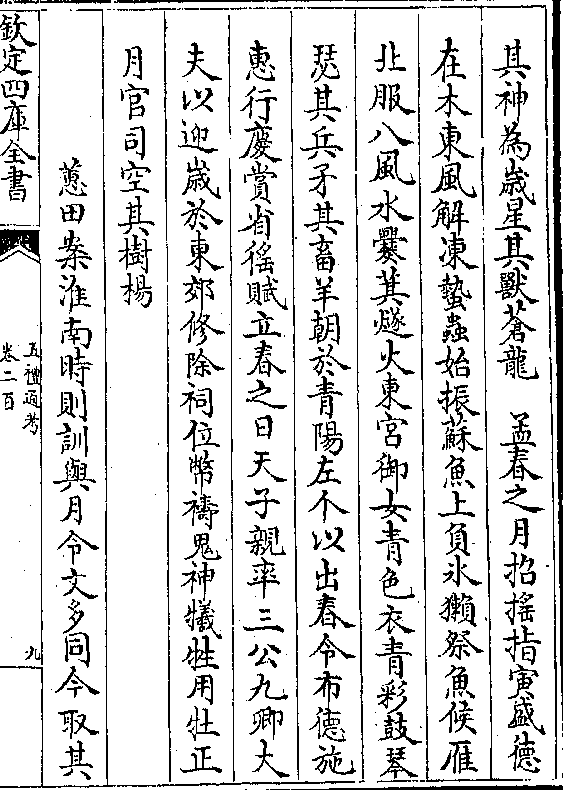 其神為歲星其獸蒼龍　孟春之月招搖指寅盛德
在木東風解凍蟄蟲始振蘇魚上負冰獺祭魚候雁
北服八風水爨萁燧火東宮御女青色衣青彩鼓琴
瑟其兵矛其畜羊朝於青陽左个以出春令布德施
惠行慶賞省徭賦立春之日天子親率三公九卿大
夫以迎歲於東郊修除祠位幣禱鬼神犧牲用牡正
月官司空其樹楊
蕙田案淮南時則訓與月令文多同今取其
欽定四庫全書
五禮通考
卷二百
九